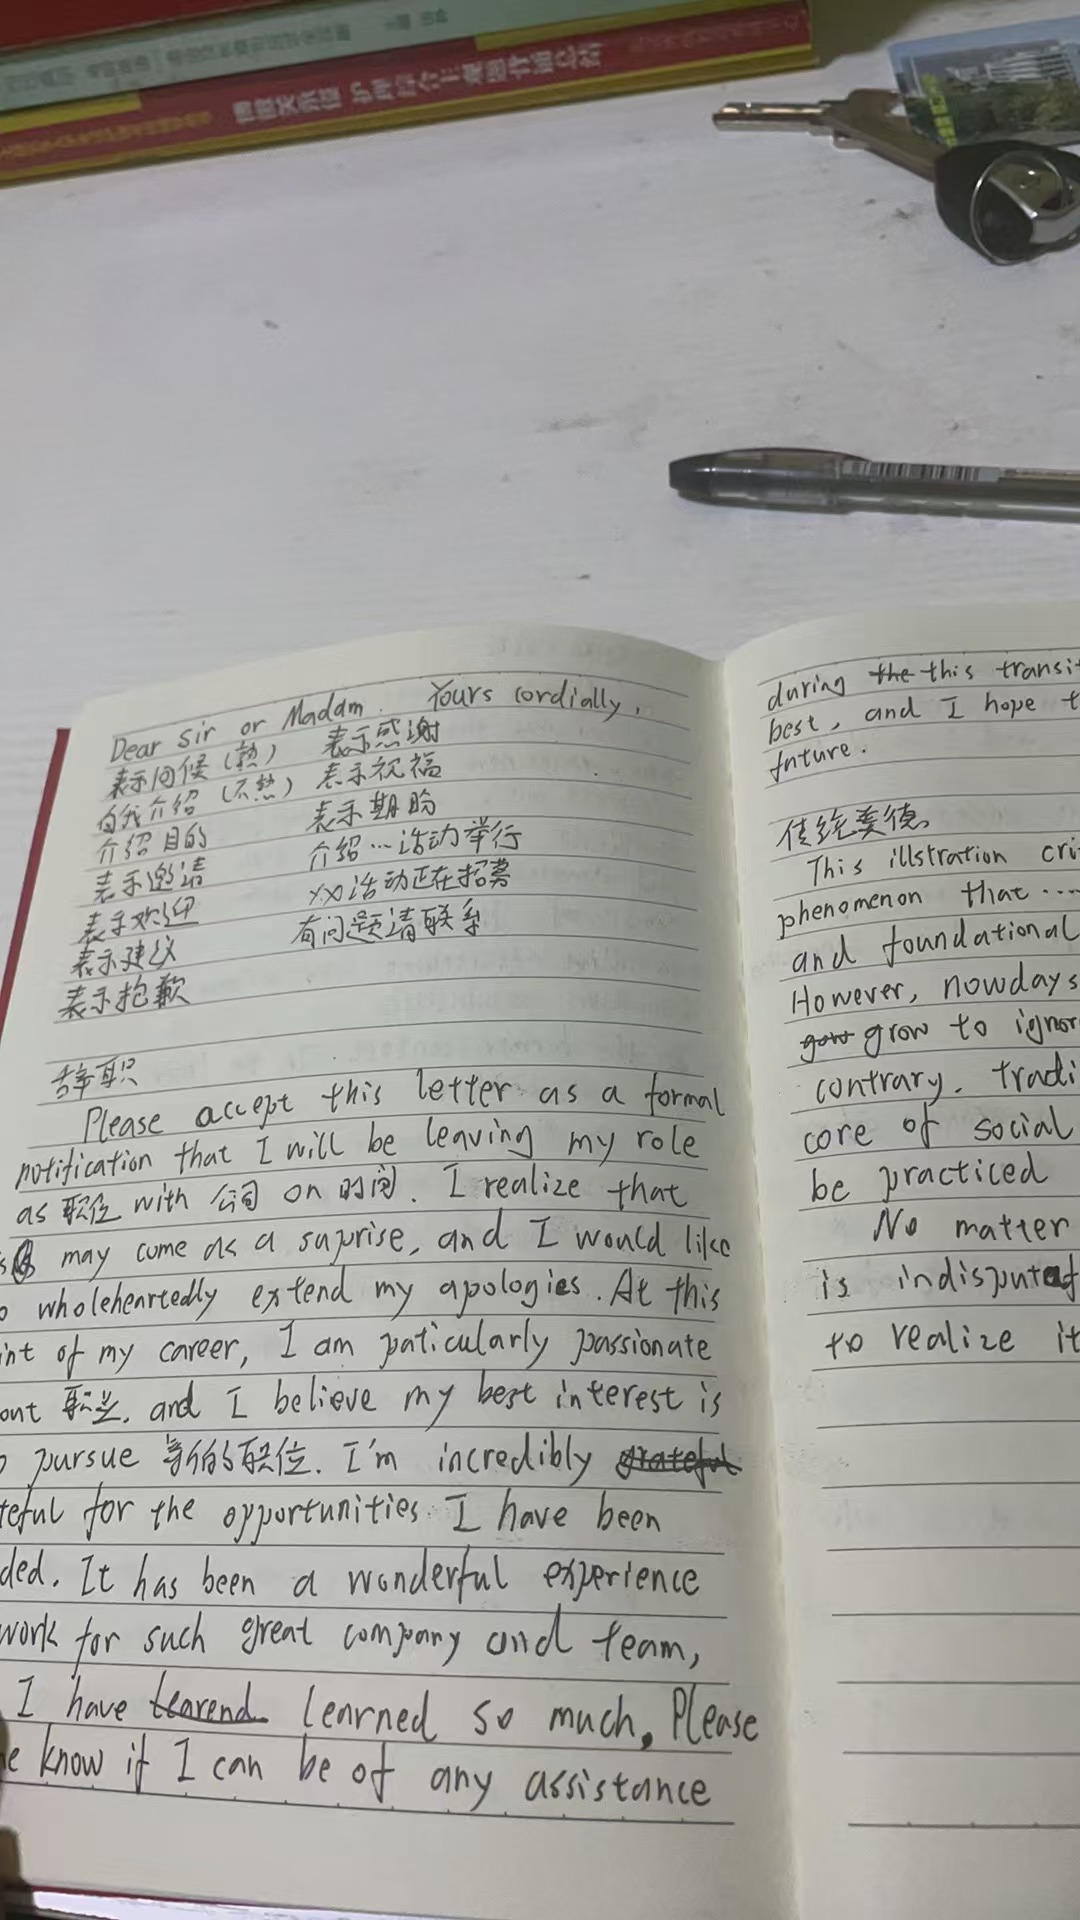 Dear Sir or Madam. Yours cordially,
表示问候(熟) 表示感谢
自我介绍(不熟) 表示祝福
介绍目的 表示期盼
表示邀请 介绍…活动举行
表示欢迎 XX活动正在招募
表示建议 有问题请联系
表示抱歉
辞职
Please accept this letter as a formal
notification that I will be leaving my role
as 职位 with 公司 on 时间. I realize that
may come as a suprise, and I would like
wholeheartedly extend my apologies. At this
int of my career, I am paticularly passionate
out 职业, and I believe my best interest is
pursue 新的职位. I'm incredibly grateful
teful for the opportunities I have been
ded. It has been a wonderful experience
work for such great company and team,
I have learend learned so much. Please
e know if I can be of any assistance
during the this transit
best, and I hope t
future.
传统美德
This illstration cri
phenomenon that ....
and foundational
However, nowdays
grow to ignor
contrary, tradi
core of social
be practiced
No matter
is indisputa
to realize it